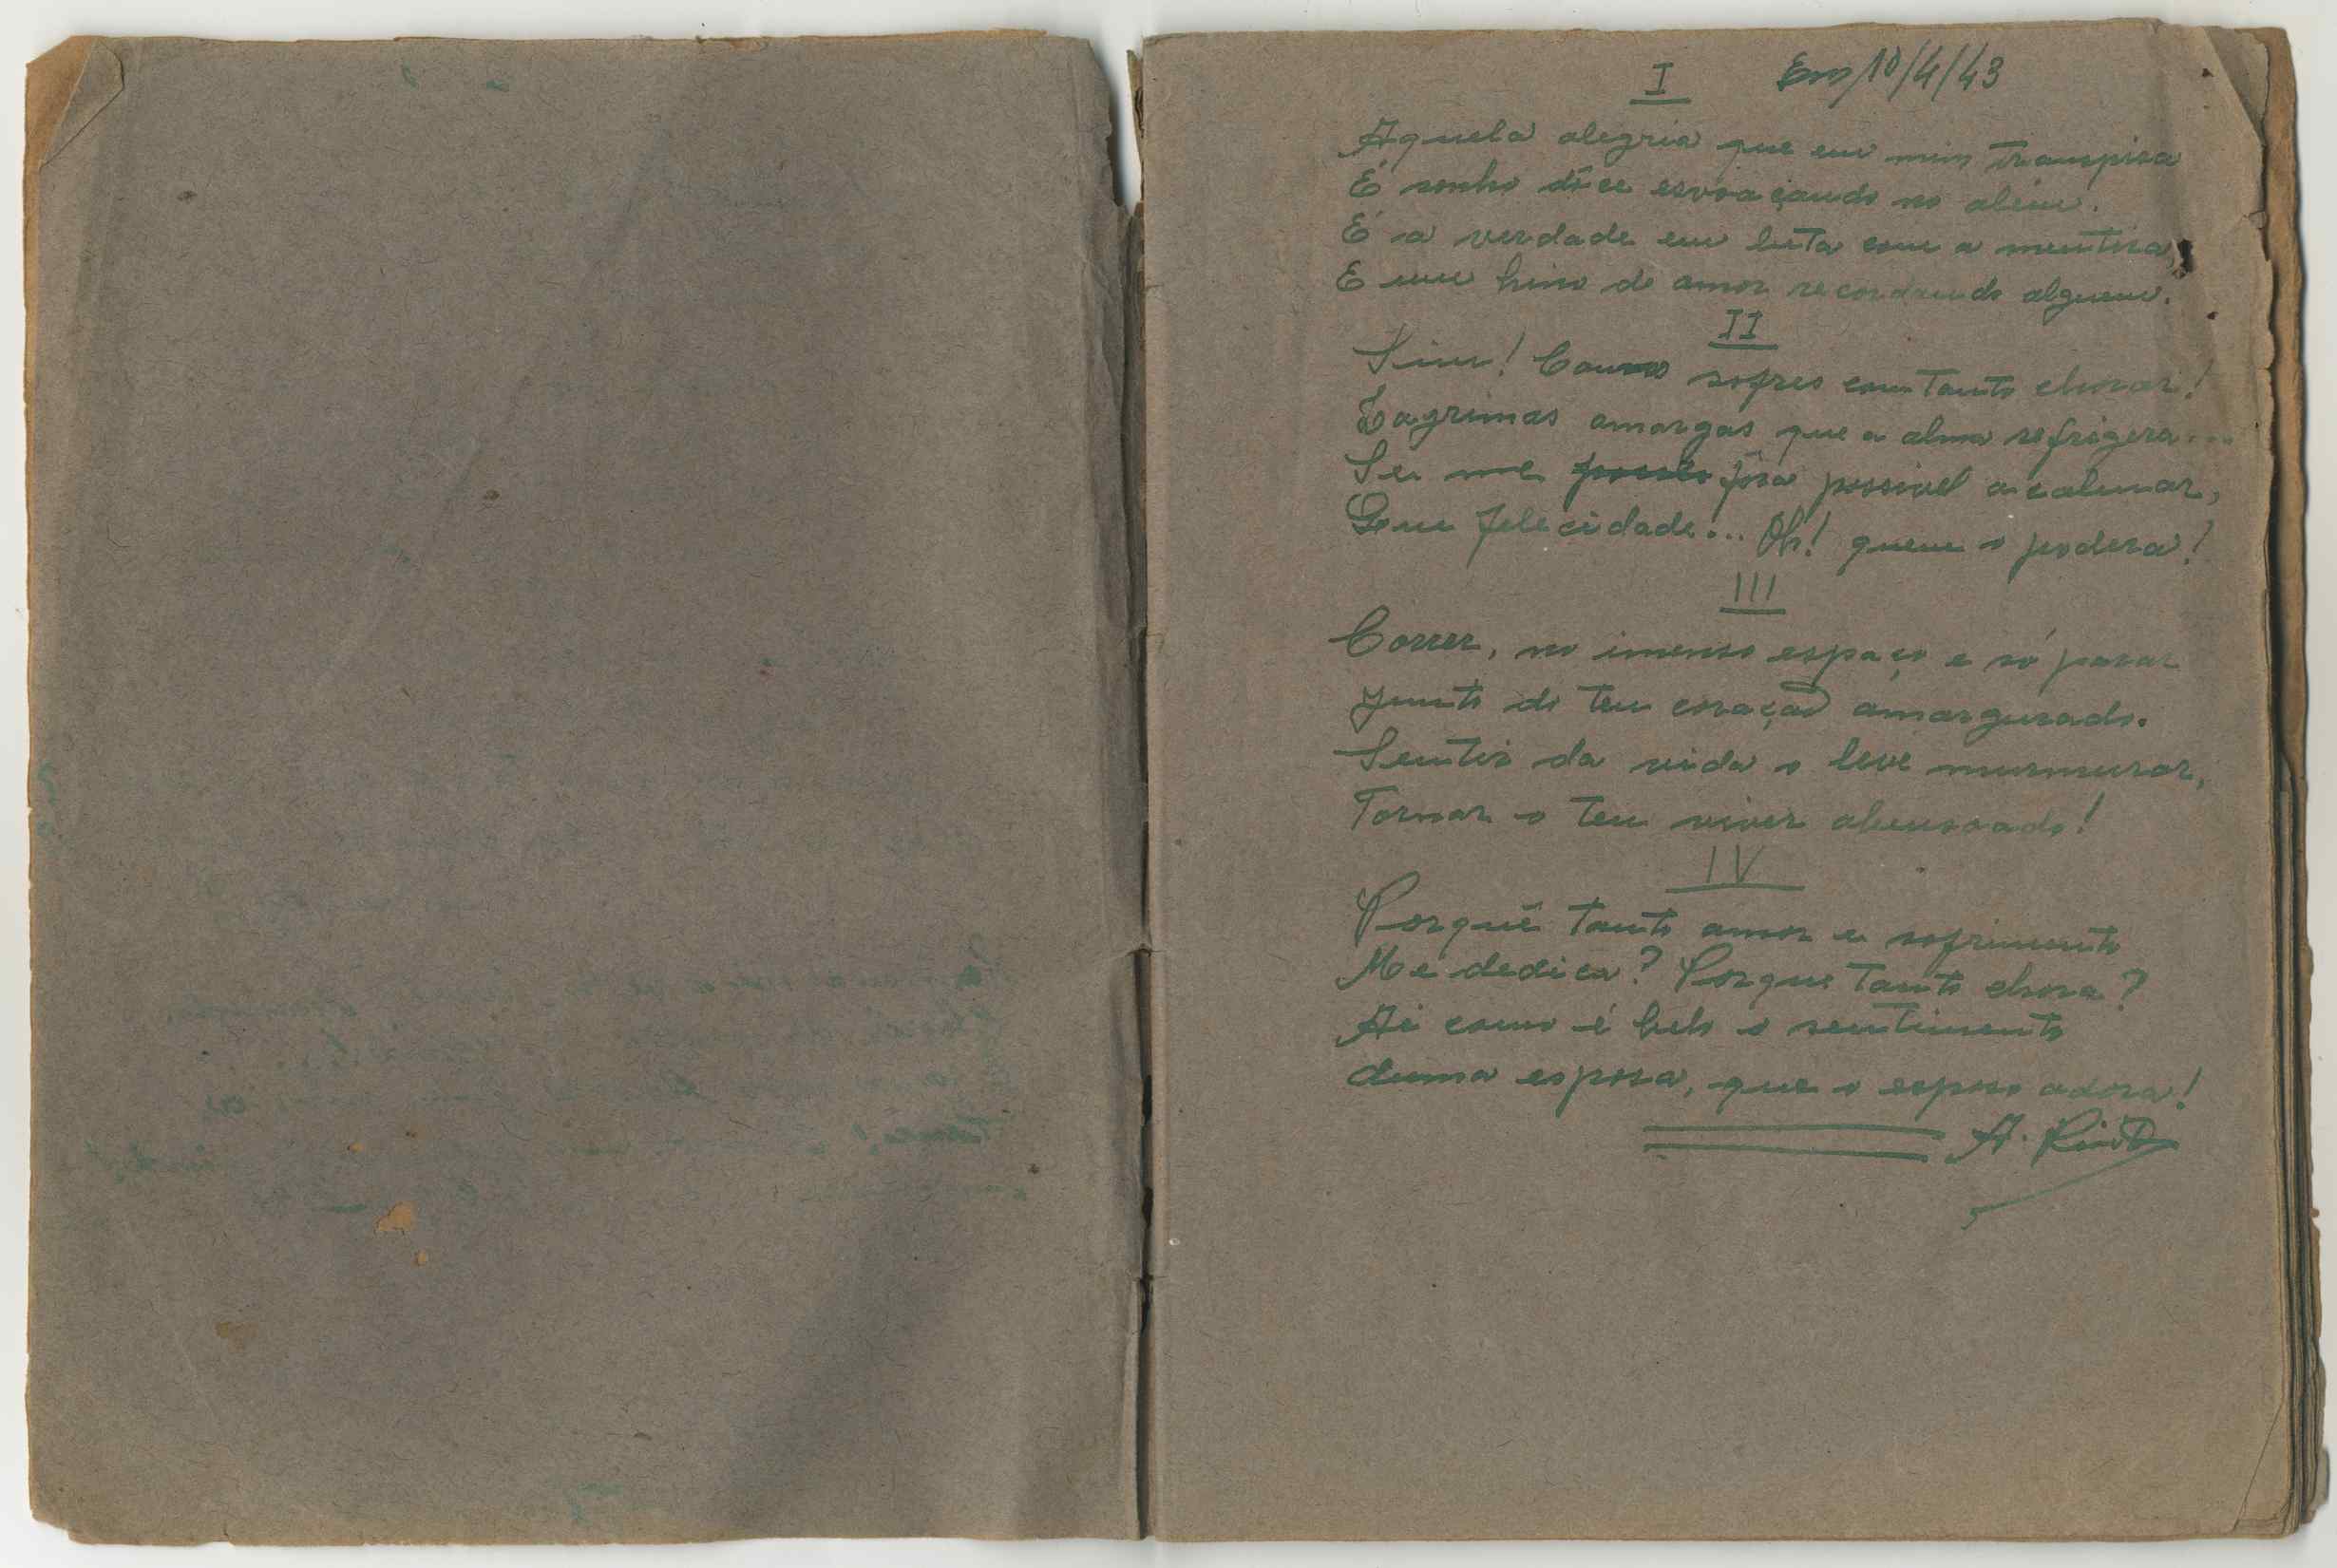 I Em 10/4/43
Aquela alegria que em mim transpira
É sonho dôce esvoaçando no além.
É a verdade em luta com a mentira,
E um hino de amor recordando alguem.
II
Sim! Como sofres com tanto chorar!
Lagrimas amargas que a alma refrigera...
Se me fôra possivel acalmar,
Que felecidade... Oh! quem o podera!
III
Correr, no imenso espaço e só parar
Junto do teu coração amargurado.
Sentir da vida o leve murmurar,
Tornar o teu viver abensoado!
IV
Porquê tanto amor e sofrimento
Me dedica? Porque tanto chora?
Ai como é belo o sentimento
duma esposa, que o esposo adora!
A. Pinto